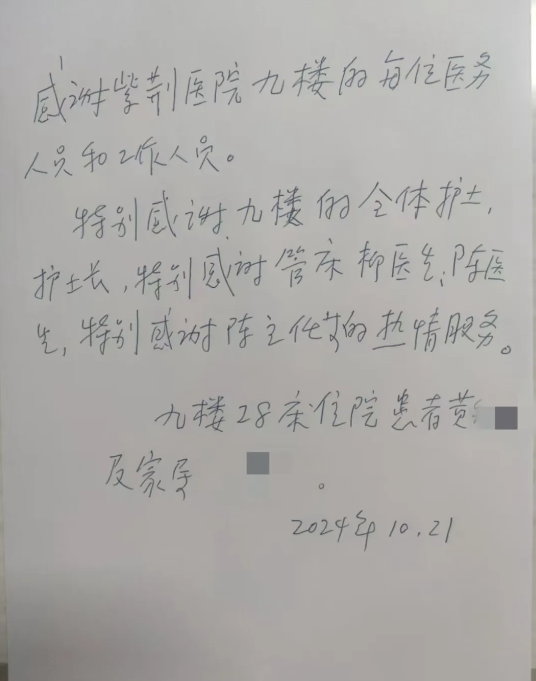 感谢紫荆医院九楼的每位医务
人员和工作人员。
特别感谢九楼的全体护士,
护士长,特别感谢管床柳医生,陈医
生,特别感谢陈主任的热情服务。
九楼28床住院患者黄
及家属。
2024年10.21